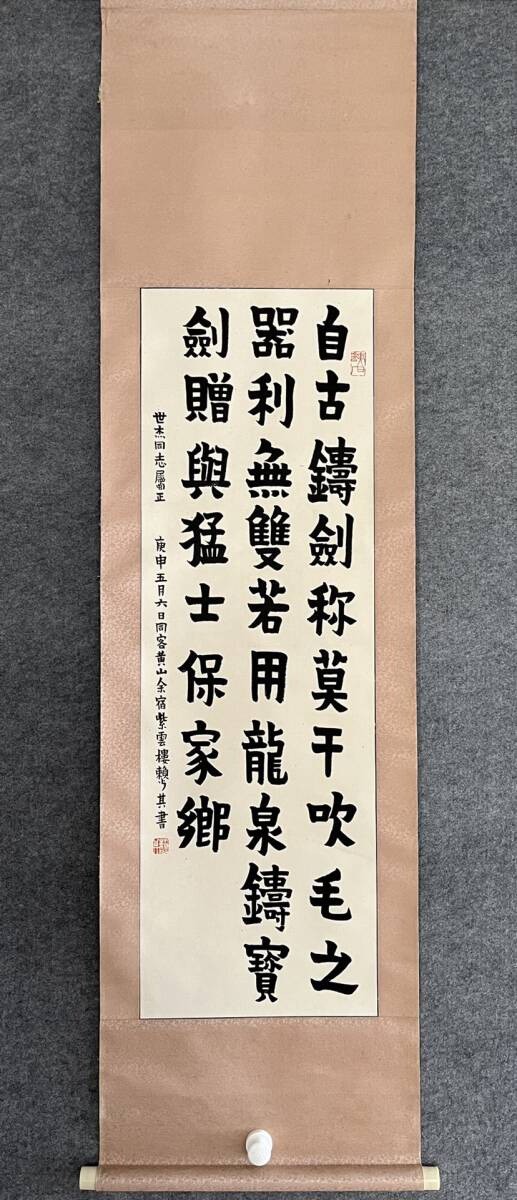 自古鑄劍称莫干吹毛之
器利無雙若用龍泉鑄寶
劍贈與猛士保家鄉
世杰同志屬正 庚申五月六日同客黄山余宿紫雲樓賴少其書